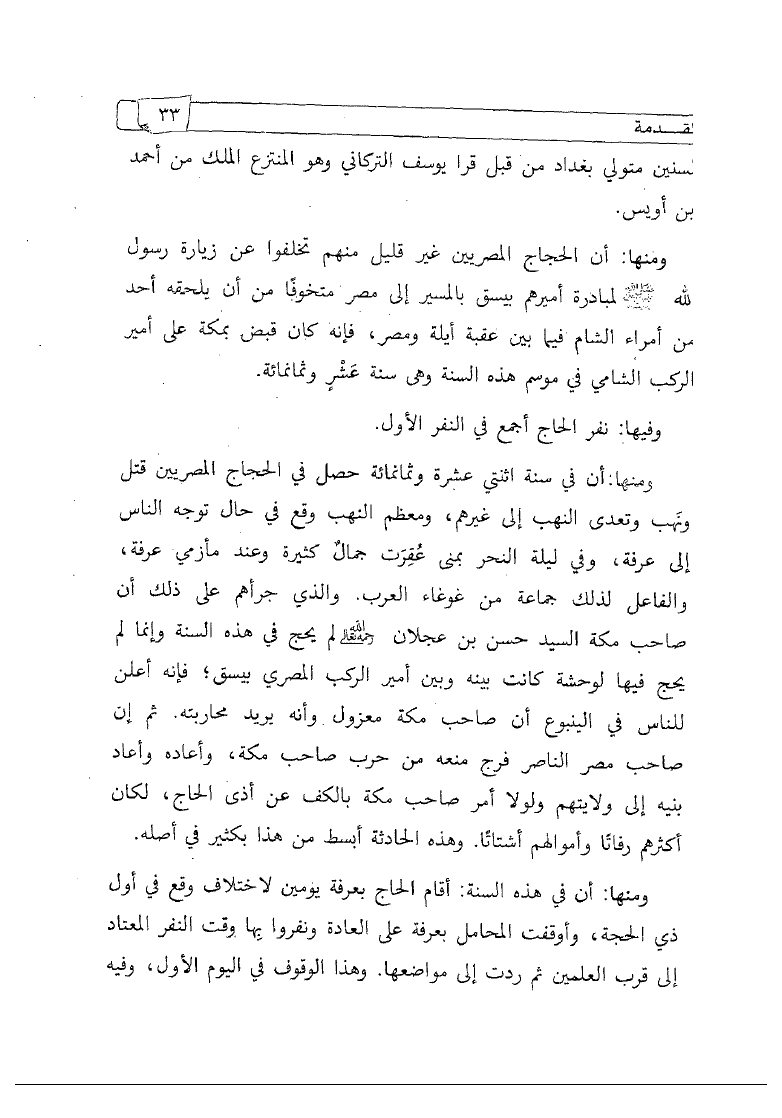 لقـــدمة ٣٣
لسنين متولي بغداد من قبل قرا يوسف التركاني وهو المنتزع الملك من أحمد
بن أويس.
ومنها: أن الحجاج المصريين غير قليل منهم تخلفوا عن زيارة رسول
لله ﷺ لمبادرة أميرهم بيسق بالمسير إلى مصر متخوفًا من أن يلحقه أحد
من أمراء الشام فيما بين عقبة أيلة ومصر، فإنه كان قبض بمكة على أمير
الركب الشامي في موسم هذه السنة وهى سنة عَشْرٍ وثمانمائة.
وفيها: نفر الحاج أجمع في النفر الأول.
ومنها: أن في سنة اثنتي عشرة وثمانمائة حصل في الحجاج المصريين قتل
ونَهب وتعدى النهب إلى غيرهم، ومعظم النهب وقع في حال توجه الناس
إلى عرفة، وفي ليلة النحر بمنى عُقِرَت جمالٌ كثيرة وعند مأزمي عرفة،
والفاعل لذلك جماعة من غوغاء العرب. والذي جرأهم على ذلك أن
صاحب مكة السيد حسن بن عجلان رحمه الله لم يحج في هذه السنة وإنما لم
يحج فيها لوحشة كانت بينه وبين أمير الركب المصري بيسق؛ فإنه أعلن
للناس في الينبوع أن صاحب مكة معزول وأنه يريد محاربته. ثم إن
صاحب مصر الناصر فرج منعه من حرب صاحب مكة، وأعاده وأعاد
بنيه إلى ولايتهم ولولا أمر صاحب مكة بالكف عن أذى الحاج، لكان
أكثرهم رفاتًا وأموالهم أشتاتًا. وهذه الحادثة أبسط من هذا بكثير في أصله.
ومنها: أن في هذه السنة: أقام الحاج بعرفة يومين لاختلاف وقع في أول
ذي الحجة، وأوقفت المحامل بعرفة على العادة ونفروا بِها وقت النفر المعتاد
إلى قرب العلمين ثم ردت إلى مواضعها. وهذا الوقوف في اليوم الأول، وفيه